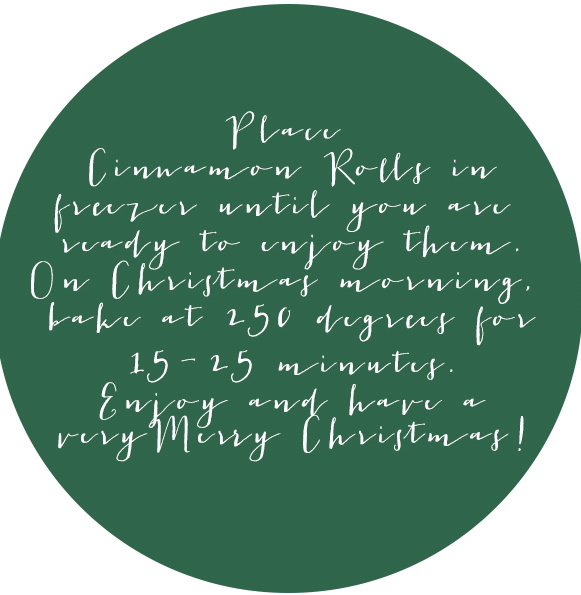 Place
Cinnamon Rolls in
freezer until you are
ready to enjoy them.
On Christmas morning,
bake at 250 degrees for
15-25 minutes.
Enjoy and have a
very Merry Christmas!